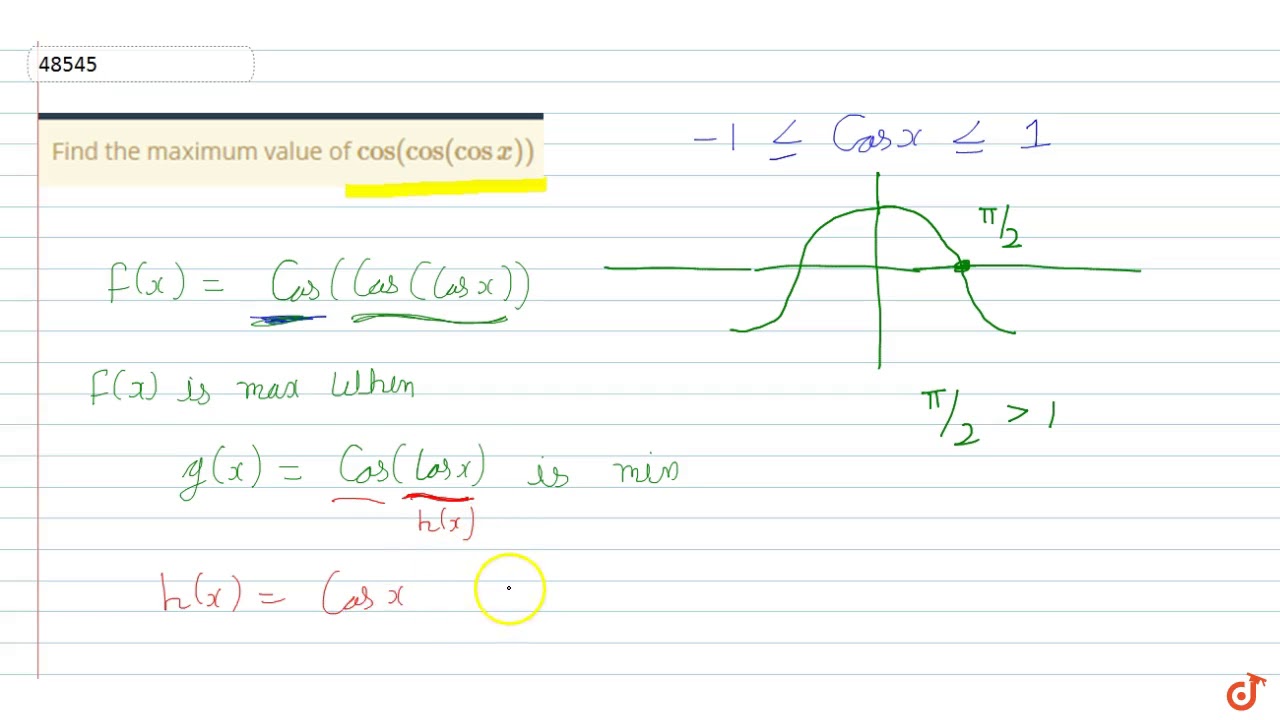 48545
Find the maximum value of cos(cos(cos x))
-1 ≤ Cos x ≤ 1
π/2
f(x) = Cos(Cos(Cos x))
f(x) is max When
π/2 > 1
g(x) = Cos(Cos x) is min
h(x)
h(x) = Cos x